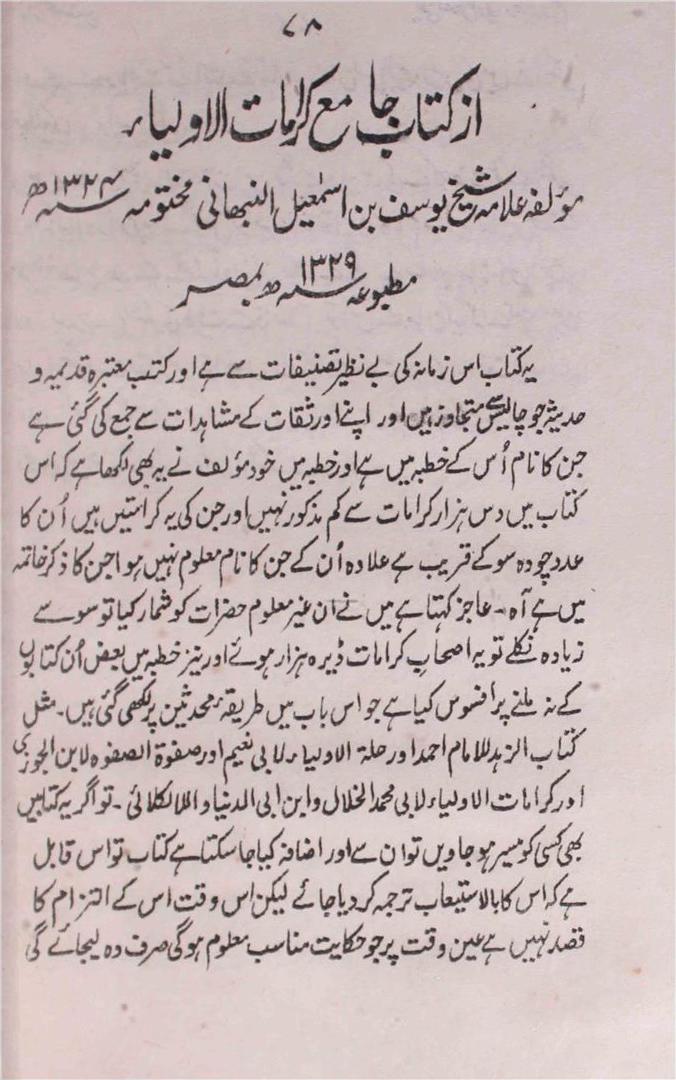 ۷۸
از کتاب جامع کرامات الاولیاء
مؤلفہ علامہ شیخ یوسف بن اسمٰعیل النبھانی مختومہ ۱۳۲۴ سنہ ھ
مطبوعہ ۱۳۲۹ سنہ ھ بمصر
یہ کتاب اس زمانہ کی بے نظیر تصنیفات سے ہے اور کتب معتبرہ قدیمہ و
حدیثہ جو چالیس سے متجاوز ہیں اور اپنے اور ثقات کے مشاہدات سے جمع کی گئی ہے
جن کا نام اُس کے خطبہ میں ہے اور خطبہ میں خود مؤلف نے یہ بھی لکھا ہے کہ اس
کتاب میں دس ہزار کرامات سے کم مذکور نہیں اور جن کی یہ کرامتیں ہیں اُن کا
عدد چودہ سو کے قریب ہے علاوہ اُن کے جن کا نام معلوم نہیں ہوا جن کا ذکر خاتمہ
میں ہے آہ۔ عاجز کہتا ہے میں نے ان غیر معلوم حضرات کو شمار کیا تو سو سے
زیادہ نکلے تو یہ اصحابِ کرامات ڈیرہ ہزار ہوئے اور نیز خطبہ میں بعض اُن کتابوں
کے نہ ملنے پر افسوس کیا ہے جو اس باب میں طریقہ محدثین پر لکھی گئی ہیں۔ مثل
کتاب الزہد للامام احمد اور حلۃ الاولیاء لابی نعیم اور صفوۃ الصفوہ لابن الجوزی
اور کرامات الاولیاء لابی محمد الخلال وابن ابی الدنیا و اللالکلائی۔ تو اگر یہ کتابیں
بھی کسی کو میسر ہو جاویں تو ان سے اور اضافہ کیا جا سکتا ہے کتاب تو اس قابل
ہے کہ اس کا بالاستیعاب ترجمہ کر دیا جائے لیکن اس وقت اس کے التزام کا
قصد نہیں ہے عین وقت پر جو حکایت مناسب معلوم ہوگی صرف وہ لیجائے گی